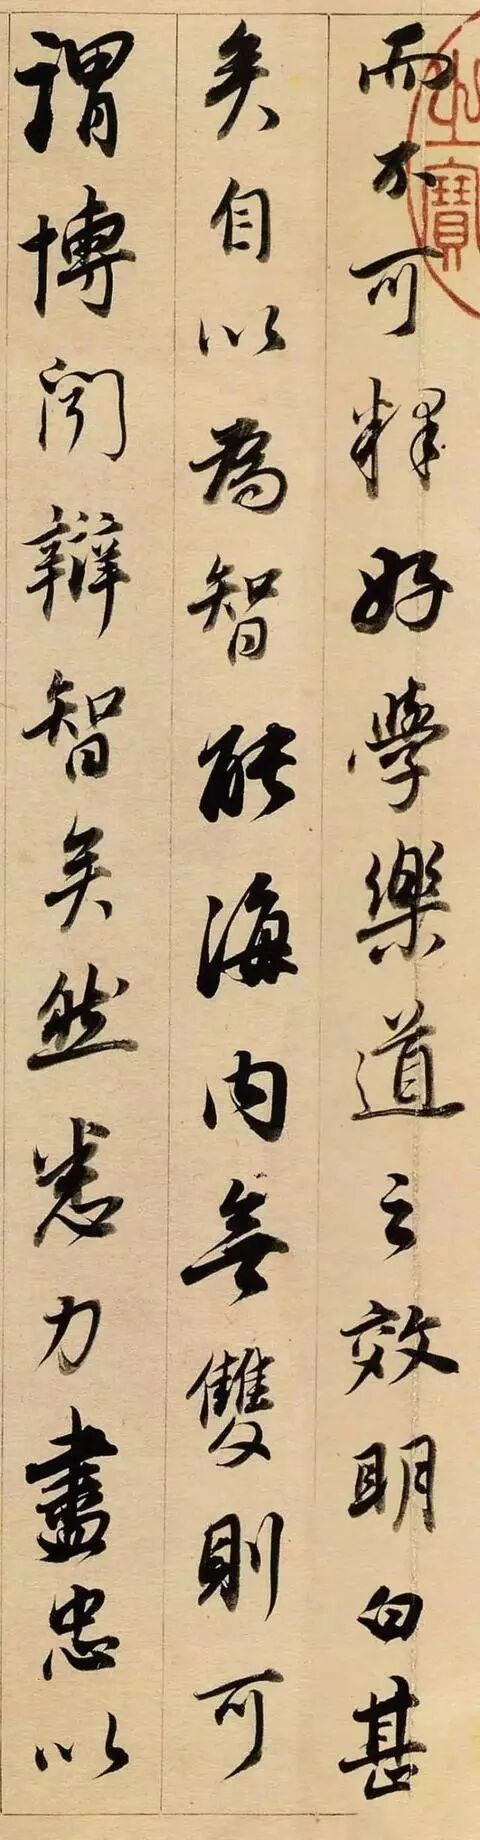 而不可释好學樂道之效明白甚
矣自以為智能海内無雙則可
謂博聞辯智矣然悉力盡忠以
寶